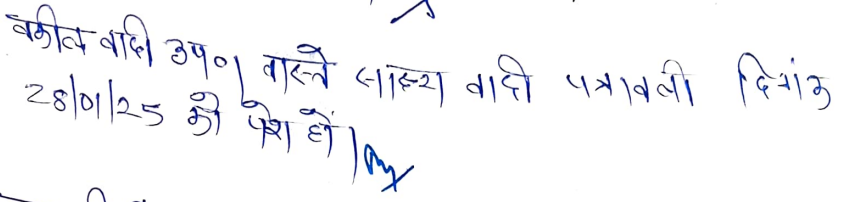 वकील वादी उप०। वास्ते साक्ष्य वादी पत्रावली दिनांक
28/01/25 को पेश हो।